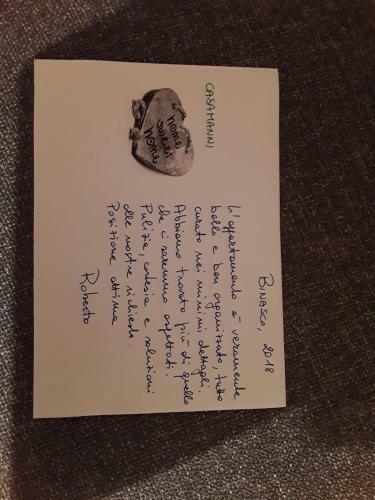 CASAMANNI
home
sweet
home
BINASCO, 2018
L'appartamento è veramente
bello e ben organizzato, tutto
curato nei minimi dettagli.
Abbiamo trovato più di quello
che ci saremmo aspettati.
Pulizia, cortesia e soluzioni
alle nostre richieste.
Posizione ottima
Roberto